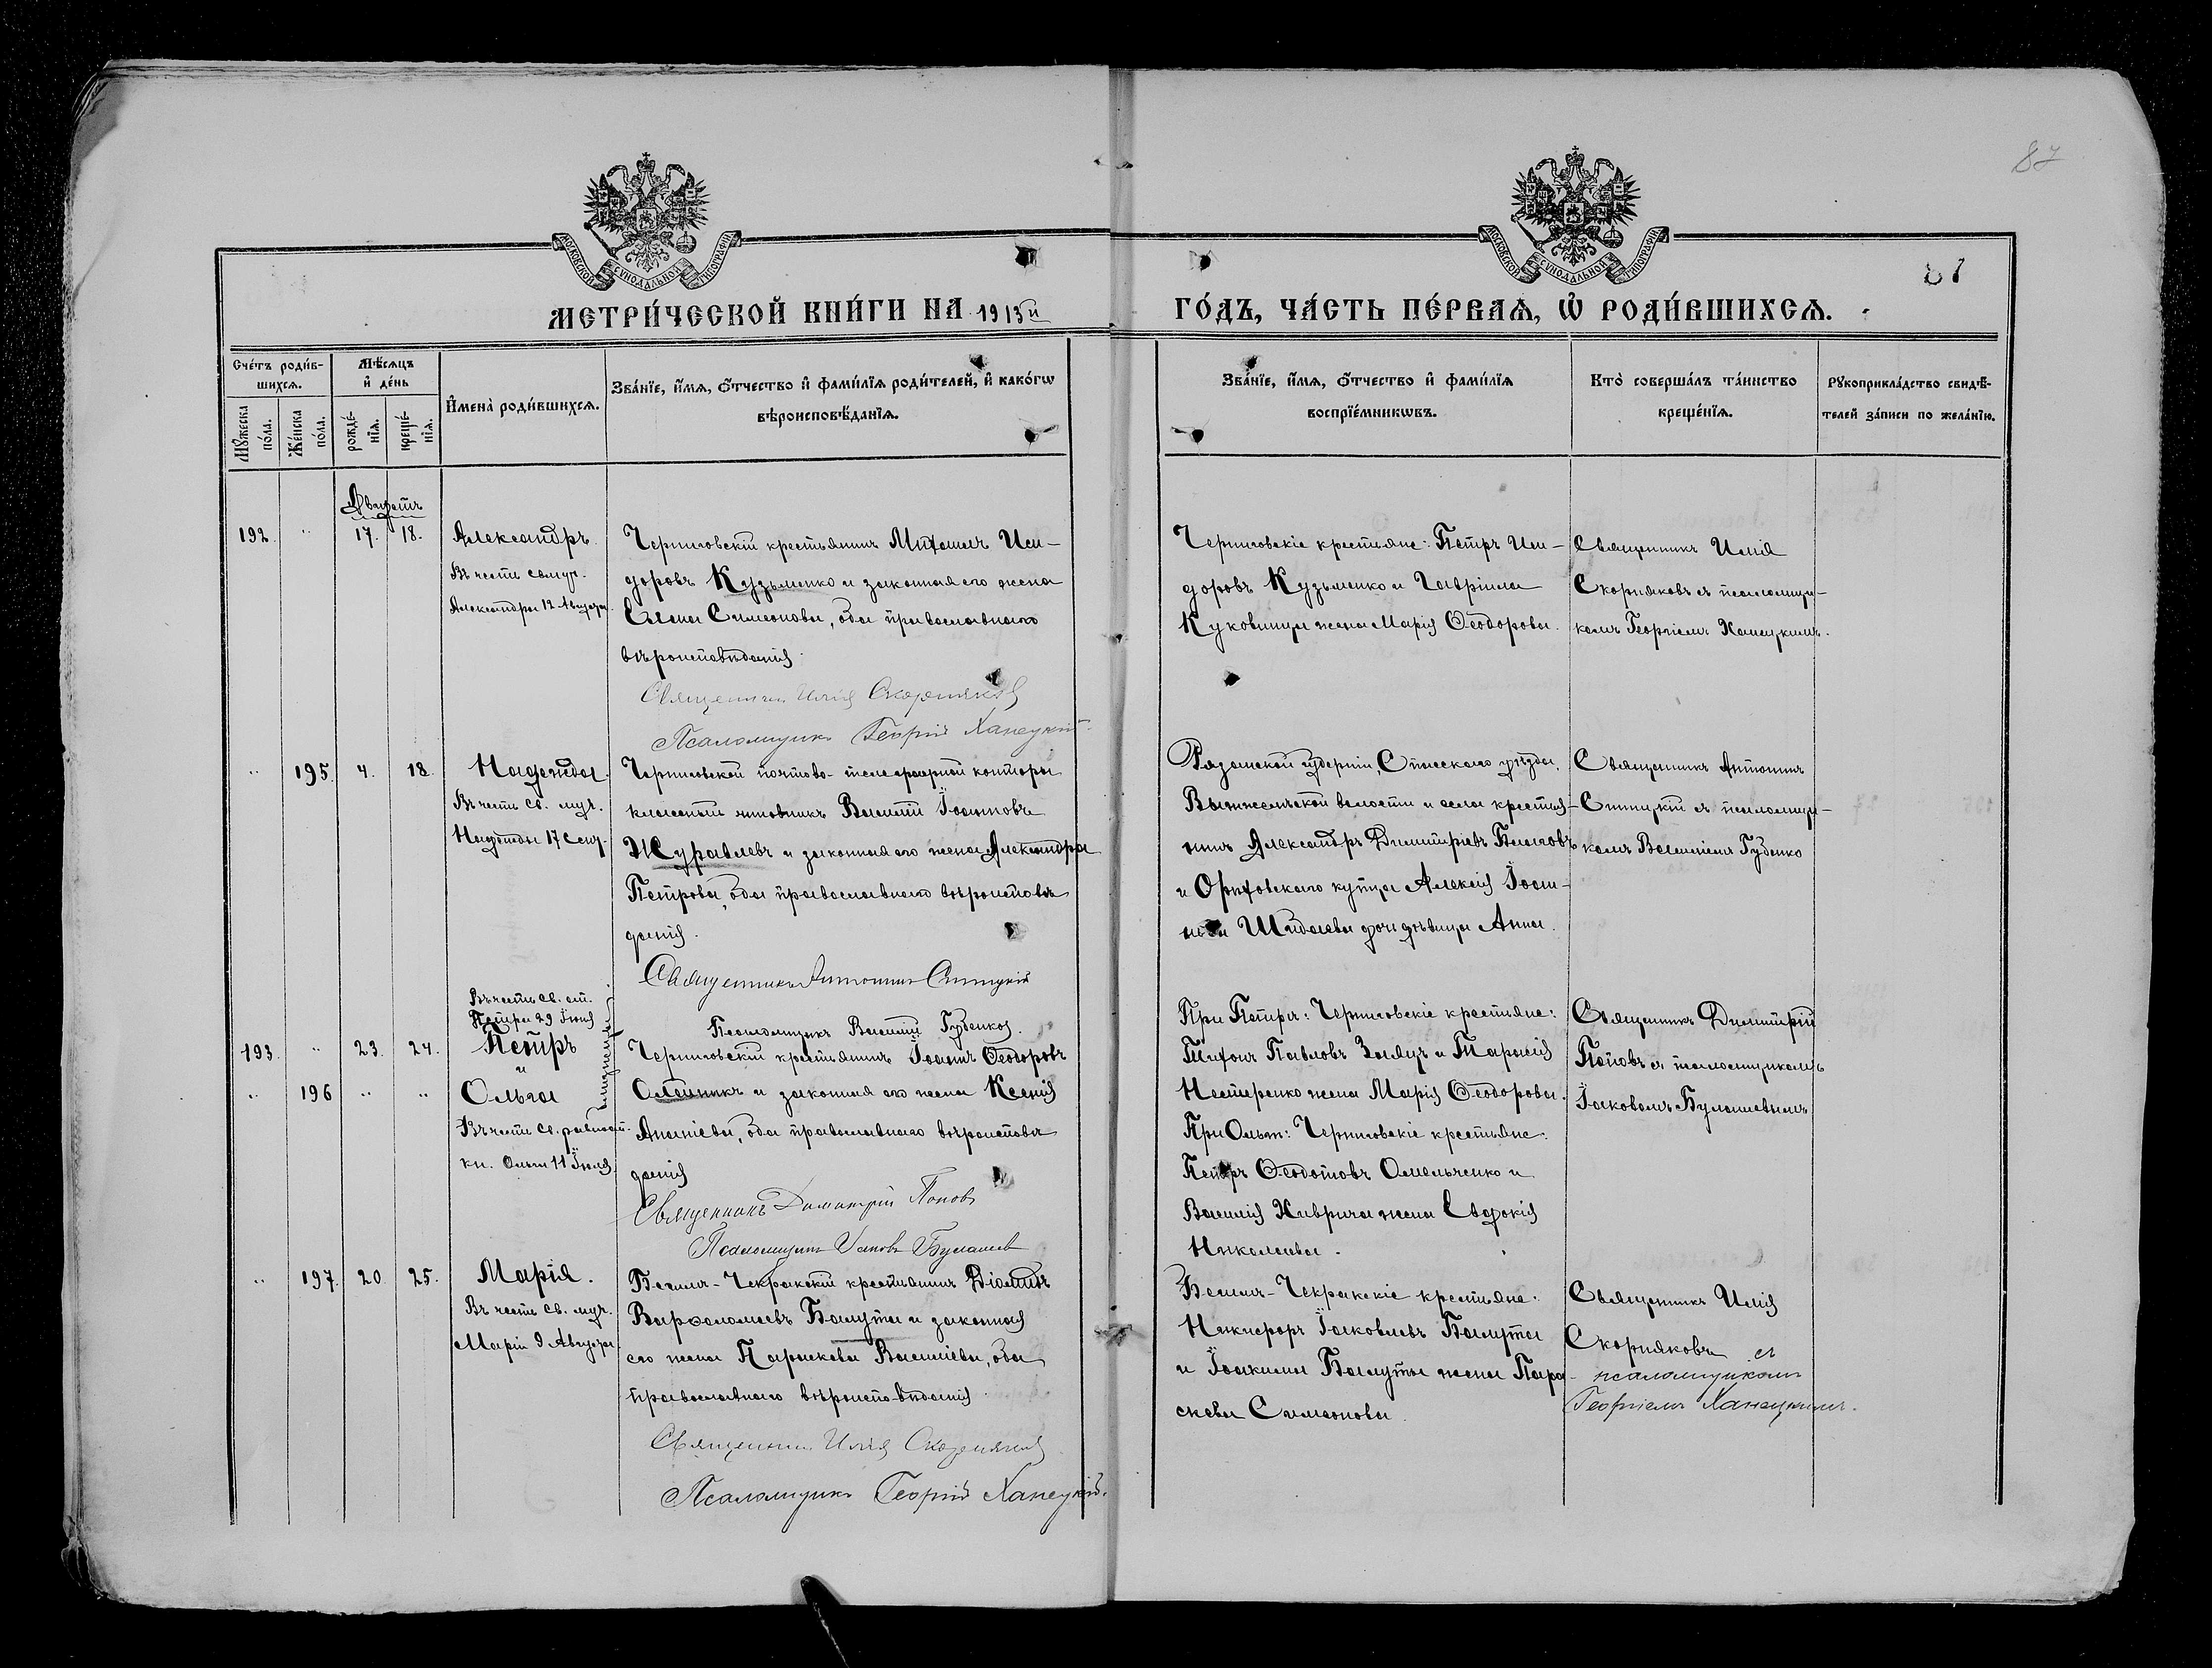 87
87
МОСКОВСКОЙ СѴНОДАЛЬНОЙ ТИПОГРАФІИ
МОСКОВСКОЙ СѴНОДАЛЬНОЙ ТИПОГРАФІИ
МЕТРИ́ЧЕСКОЙ КНИ́ГИ НА 1913й ГО́ДЪ, ЧА́СТЬ ПЕ́РВАѦ, Ѡ҆ РОДИ́ВШИХСѦ.
Сче́тъ роди́в-
шихсѧ.
Мꙋ́жеска по́ла.
Же́нска по́ла.
Мѣ́сѧцъ
и҆ де́нь
рожде́-
нїѧ.
креще́-
нїѧ.
И҆мена̀ роди́вшихсѧ.
Зва́нїе, и҆́мѧ, ѻ҆́тчество и҆ фами́лїѧ роди́телей, и҆ како́гѡ
вѣроисповѣ́данїѧ.
Зва́нїе, и҆́мѧ, ѻ҆́тчество и҆ фами́лїѧ
воспрїе́мникѡвъ.
Кто̀ соверша́лъ та́инство
креще́нїѧ.
Рꙋкоприкла́дство свидѣ́-
телей за́писи по жела́нїю.
Августъ
192. " 17. 18. Александръ
Въ честь свмуч.
Александра 12 Августа.
Черниговскій крестьянинъ Михаилъ Иси-
доровъ Кузьменко и законная его жена
Елена Симеонова, оба православнаго
вѣроисповѣданія.
Священникъ Илія Скорняковъ
Псаломщикъ Георгій Ханецкій.
Черниговскіе крестьяне: Петръ Иси-
доровъ Кузьменко и Гавріила
Куковицы жена Марія Ѳеодорова.
Священникъ Илія
Скорняковъ съ псаломщи-
комъ Георгіемъ Ханецкимъ.
" 195. 4. 18. Надежда.
Въ честь св. муч.
Надежды 17 Сент.
Черниговской почтово-телеграфной конторы
классный чиновникъ Василій Іоанновъ
Журавлевъ и законная его жена Александра
Петрова, оба православнаго вѣроисповѣ
данія.
Священникъ Антоній Синицкій
Псаломщикъ Василій Губенко.
Рязанской губерніи, Спасскаго уѣзда,
волости и села крестья-
нинъ Александръ Димитріевъ
и Орѣховскаго купца Алексія Іоан-
нова Шибаева дочь дѣвица Анна.
Священникъ Антоній
Синицкій съ псаломщи-
комъ Василіемъ Губенко
Въ честь св. ап.
Петра 29 Іюня
193. " 23. 24. Петръ
и
" 196 " " Ольга
близнецы
Въ честь св. равноап.
кн. Ольги 11 Іюля.
Черниговскій крестьянинъ Іоаннъ Ѳеодоровъ
Олейникъ и законная его жена Ксенія
Ананіева, оба православнаго вѣроисповѣ
данія
Священникъ Димитрій Попов
Псаломщикъ Іаковъ Булашев
При Петрѣ: Черниговскіе крестьяне:
Тихонъ Павловъ Заяцъ и Тарасія
Нестеренко жена Марія Ѳеодорова.
При Ольгѣ: Черниговскіе крестьяне:
Петръ Ѳеодотовъ Омельченко и
Василія Хиврича жена Евдокія
Николаева.
Священникъ Димитрій
Поповъ съ псаломщикомъ
Іаковомъ Булашевымъ
" 197. 20. 25. Марія.
Въ честь св. муч.
Маріи 9 Августа.
Бегимъ-Чекракскій крестьянинъ
Варѳоломеевъ Баламута и законная
его жена Параскева Василіева, оба
православнаго вѣроисповѣданія.
Священникъ Илія Скорняковъ
Псаломщикъ Георгій Ханецкій.
Бегимъ-Чекракскіе крестьяне:
Никифоръ Іаковлевъ Баламута
и Іоакима Баламуты жена Пара-
скева Симеонова.
Священникъ Илія
Скорняковъ съ
псаломщикомъ
Георгіемъ Ханецкимъ.